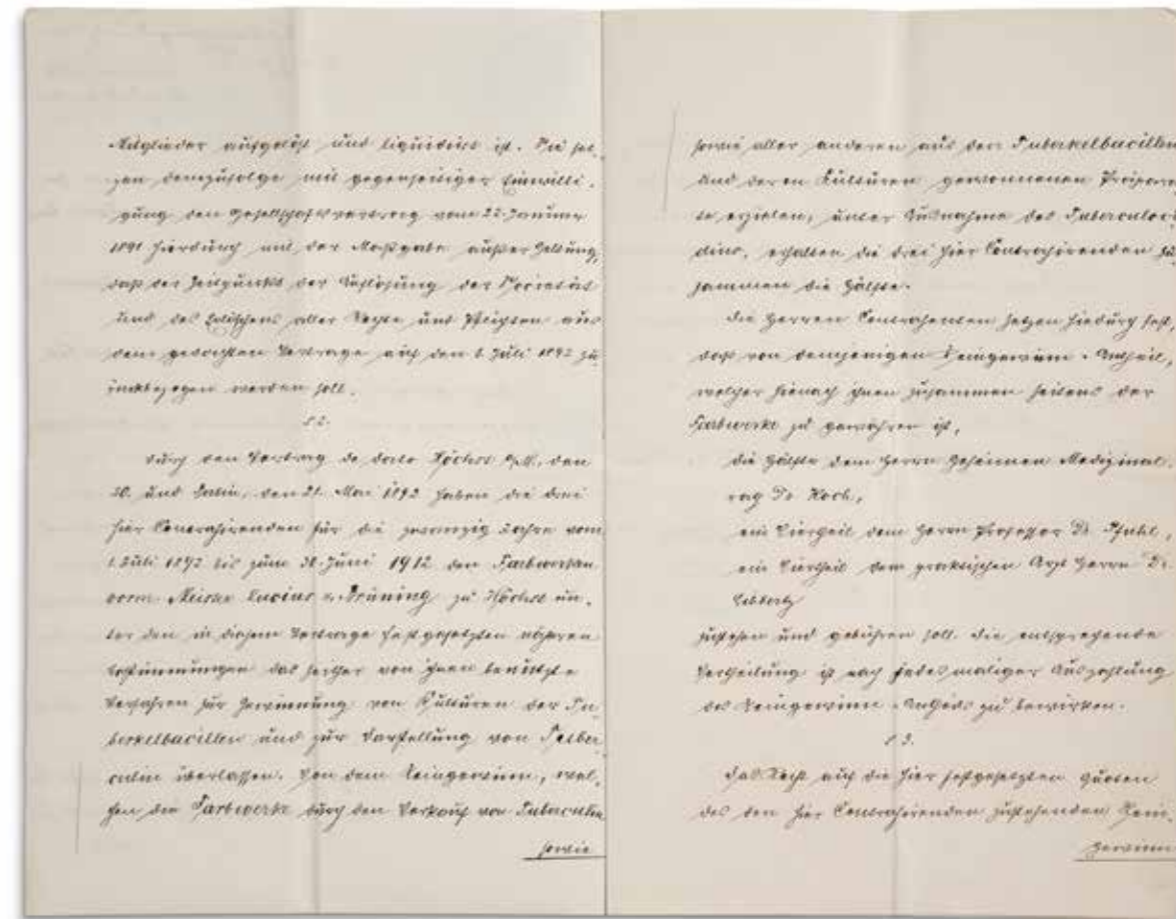 Mitglieder aufgelöst und liquidirt ist. Sie set-
zen demzufolge mit gegenseitiger Einwilli-
gung den Gesellschaftsvertrag vom 22. Januar
1891 hierdurch mit der Maßgabe außer Geltung,
daß der Zeitpunkt der Auflösung der Societät
und des Erlöschens aller Rechte und Pflichten aus
dem gedachten Vertrage auf den 1. Juli 1892 zu-
rückbezogen werden soll.
§ 2.
Durch den Vertrag de dato Höchst a/M., den
20. und Berlin, den 21. Mai 1892 haben die drei
hier Contrahirenden für die zwanzig Jahre vom
1. Juli 1892 bis zum 30. Juni 1912 den Farbwerken
vorm. Meister Lucius & Brüning zu Höchst un-
ter den in diesem Vertrage festgesetzten näheren
Bestimmungen das seither von ihnen benutzte
Verfahren zur Gewinnung von Kulturen der Tu-
berkelbacillen und zur Darstellung von Tuber-
culin überlassen. Von dem Reingewinn, wel-
chen die Farbwerke durch den Verkauf von Tuberculin
sowie
sowie aller anderen aus den Tuberkelbacillen
und deren Kulturen gewonnenen Präpara-
te erzielen, unter Ausnahme des Tuberculoci-
dins, erhalten die drei hier Contrahirenden zu-
sammen die Hälfte.
Die Herren Contrahenten setzen hiedurch fest,
daß von demjenigen Reingewinn-Antheil,
welcher hienach ihnen zusammen seitens der
Farbwerke zu gewähren ist,
die Hälfte dem Herrn Geheimen Medizinal-
rath Dr. Koch,
ein Viertheil dem Herrn Professor Dr. Pfuhl,
ein Viertheil dem praktischen Arzt Herrn Dr.
Libbertz
zustehen und gebühren soll. Die entsprechende
Vertheilung ist nach jedesmaliger Auszahlung
des Reingewinn-Antheils zu bewirken.
§ 3.
Das Recht auf die hier festgesetzten Quoten
des den hier Contrahirenden zustehenden Rein-
gewinn